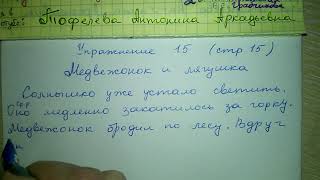 Тофелева Антонина Аркадьевна
Упражнение 15 (стр. 15)
Медвежонок и лягушка
Солнышко уже устало светить.
ср.р.
Оно медленно закатилось за горку.
Медвежонок бродил по лесу. Вдруг